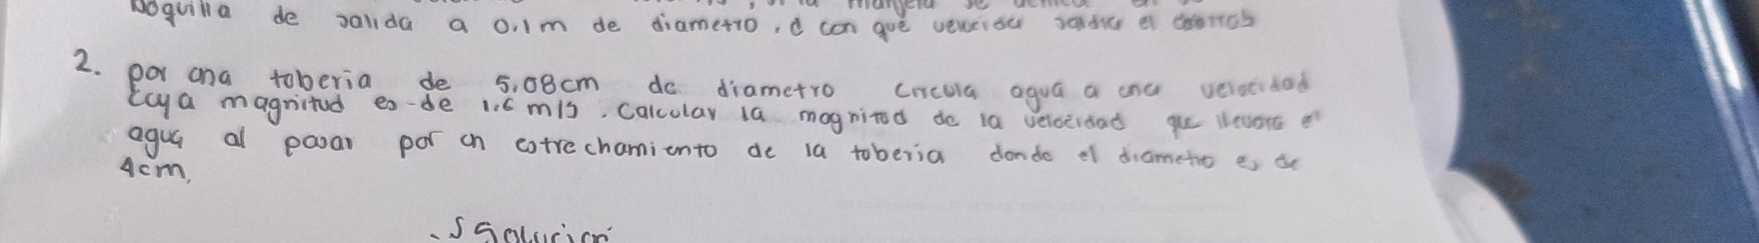 boquilla de salida a 0.1m de diametro, d con qué
2. por una toberia de 5.08cm de diametro circula agua a una velocidad
cuya magnitud es de 1.6 m/s. Calcular la magnitud de la velocidad que llevara el
agua al pasar por un estrechamiento de la toberia donde el diametro es de
4cm.
Solución